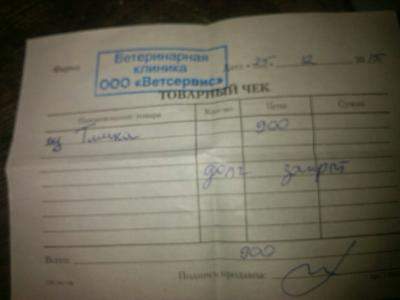 Ветеринарная
клиника
ООО «Ветсервис»
Фирма
Дата 25. 12
ТОВАРНЫЙ ЧЕК
Наименование товара Кол-во Цена Сумма
900
долг закрыт
Всего: 900
Подпись продавца